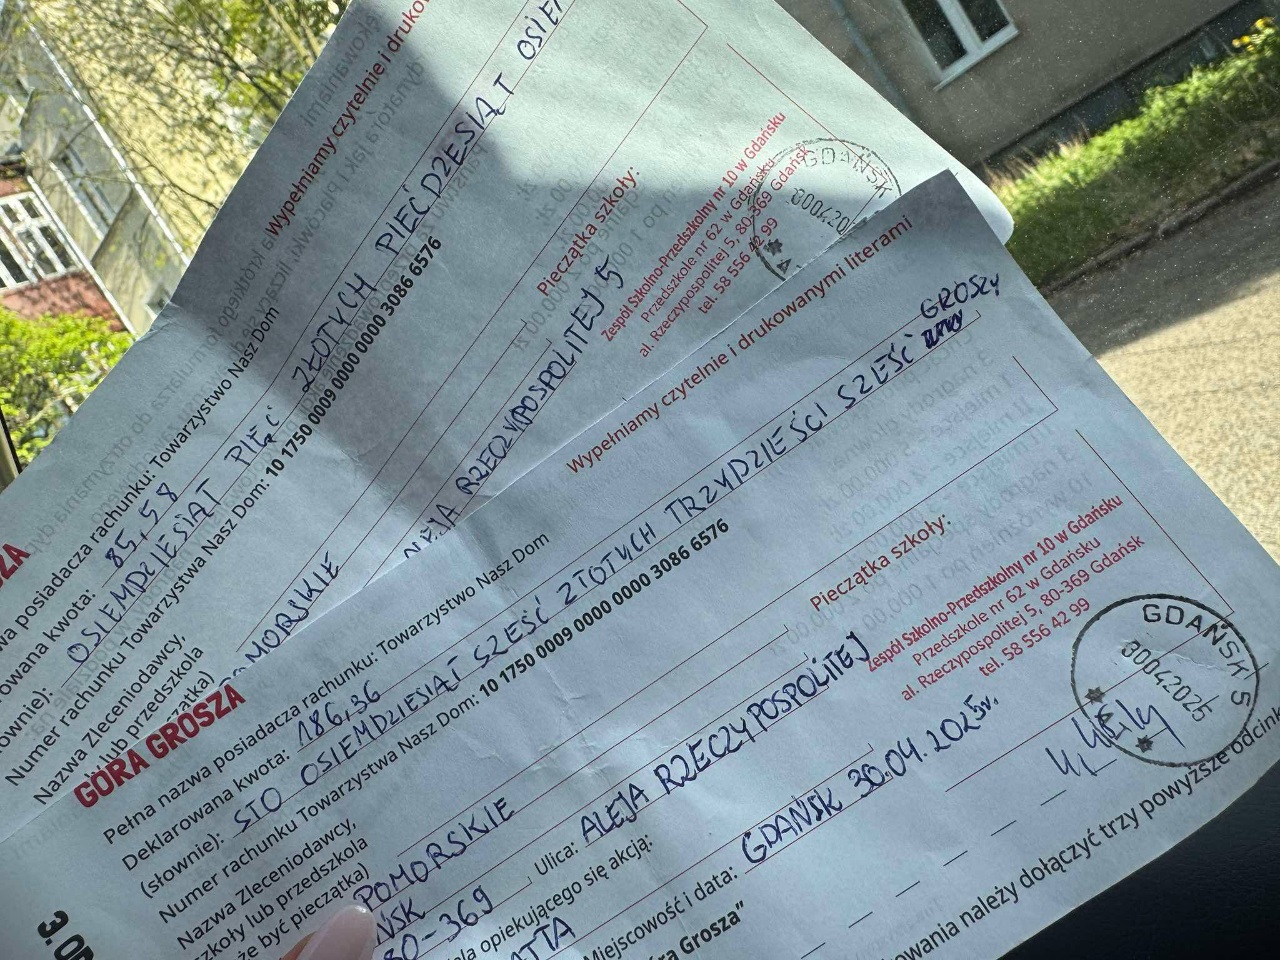 Wypełniamy czytelnie i drukow
wa posiadacza rachunku: Towarzystwo Nasz Dom
owana kwota: 85,58
ownie): OSIEMDZIESIĄT PIĘĆ ZŁOTYCH PIEĆDZESIĄT OSIE
Numer rachunku Towarzystwa Nasz Dom: 10 1750 0009 0000 0000 3086 6576
Nazwa Zleceniodawcy,
lub przedszkola
zątka)
MORSKIE
ALEJA RZECZYPOSPOLITEJ 5
Pieczątka szkoły:
Zespół Szkolno-Przedszkolny nr 10 w Gdańsku
Przedszkole nr 62 w Gdańsku
al. Rzeczypospolitej 5, 80-369 Gdańsk
tel. 58 556 42 99
GDAŃSK
3004202
GÓRA GROSZA
Wypełniamy czytelnie i drukowanymi literami
Pełna nazwa posiadacza rachunku: Towarzystwo Nasz Dom
Deklarowana kwota: 186,36
(słownie): STO OSIEMDZIESIĄT SZEŚĆ ZŁOTYCH TRZYDZIEŚCI SZEŚĆ GROSZY
Numer rachunku Towarzystwa Nasz Dom: 10 1750 0009 0000 0000 3086 6576
Nazwa Zleceniodawcy,
szkoły lub przedszkola
że być pieczątka)
Pieczątka szkoły:
Zespół Szkolno-Przedszkolny nr 10 w Gdańsku
Przedszkole nr 62 w Gdańsku
al. Rzeczypospolitej 5, 80-369 Gdańsk
tel. 58 556 42 99
POMORSKIE
ŃSK
Ulica: ALEJA RZECZYPOSPOLITEJ
80-369
ela opiekującego się akcją:
ATTA
Miejscowość i data: GDAŃSK 30.04.2025r.
GDAŃSK 5
30042025
A
óra Grosza"
kowania należy dołączyć trzy powyższe odcink
3. OD